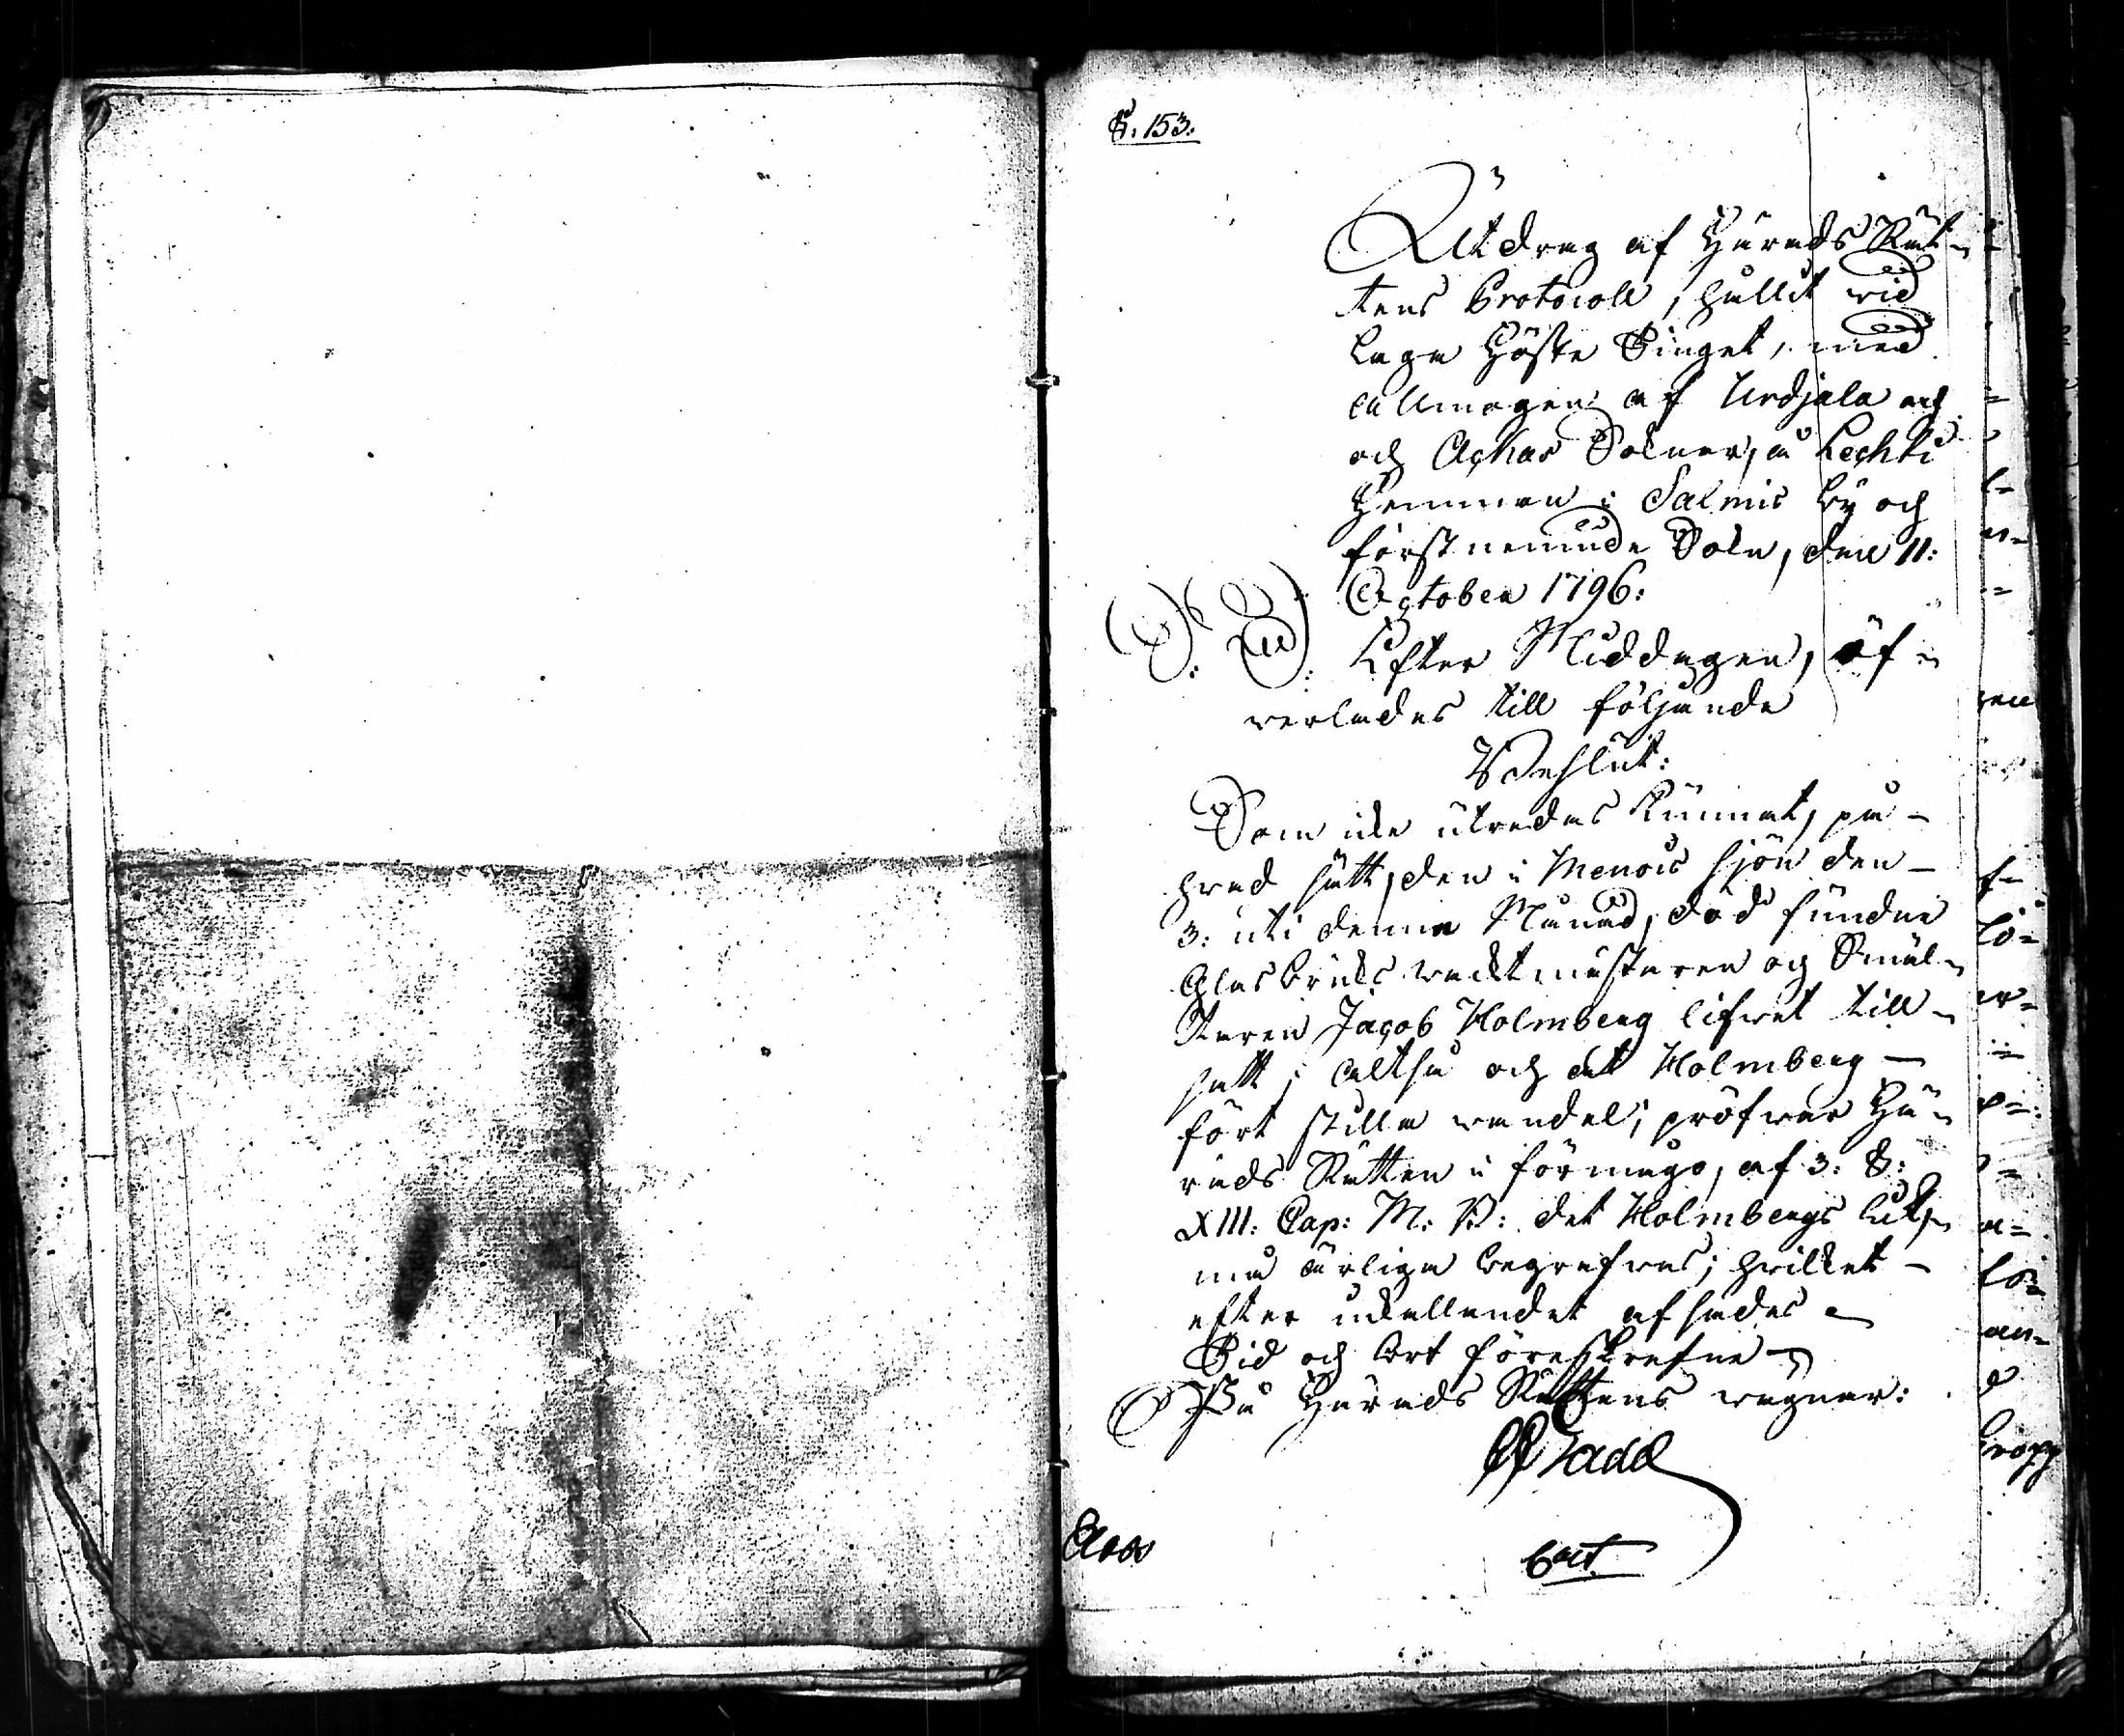 S. 153.
Utdrag af Härads Rät-
tens Protocoll, hållit wid
Laga Höste Tinget, med
allmogen af Urdjala och
och Ackas Soknar, å Lechti
Hemman i Salmis By och
förstnemnde Sokn, den 11:
October 1796:
Efter Middagen, öf-
verlades till följande
Beslut:
Som icke utredas kunnat, på
hvad sätt, den i Menois sjön den
3: uti denne Månad, död fundne
Glasbruks wacktmästaren och Smäl-
taren Jacob Holmberg lifwet till-
satt; altså och det Holmberg
fört stilla wandel; pröfwar Hä-
rads Rätten i förmågo, af 3: §:
XIII: Cap: M: B: det Holmbergs lik,
må ärliga begrafwas; hvilket
efter utallandet afsades
Tid och Ort föreskrefne
På Härads Rättens wägnar:
Gadd